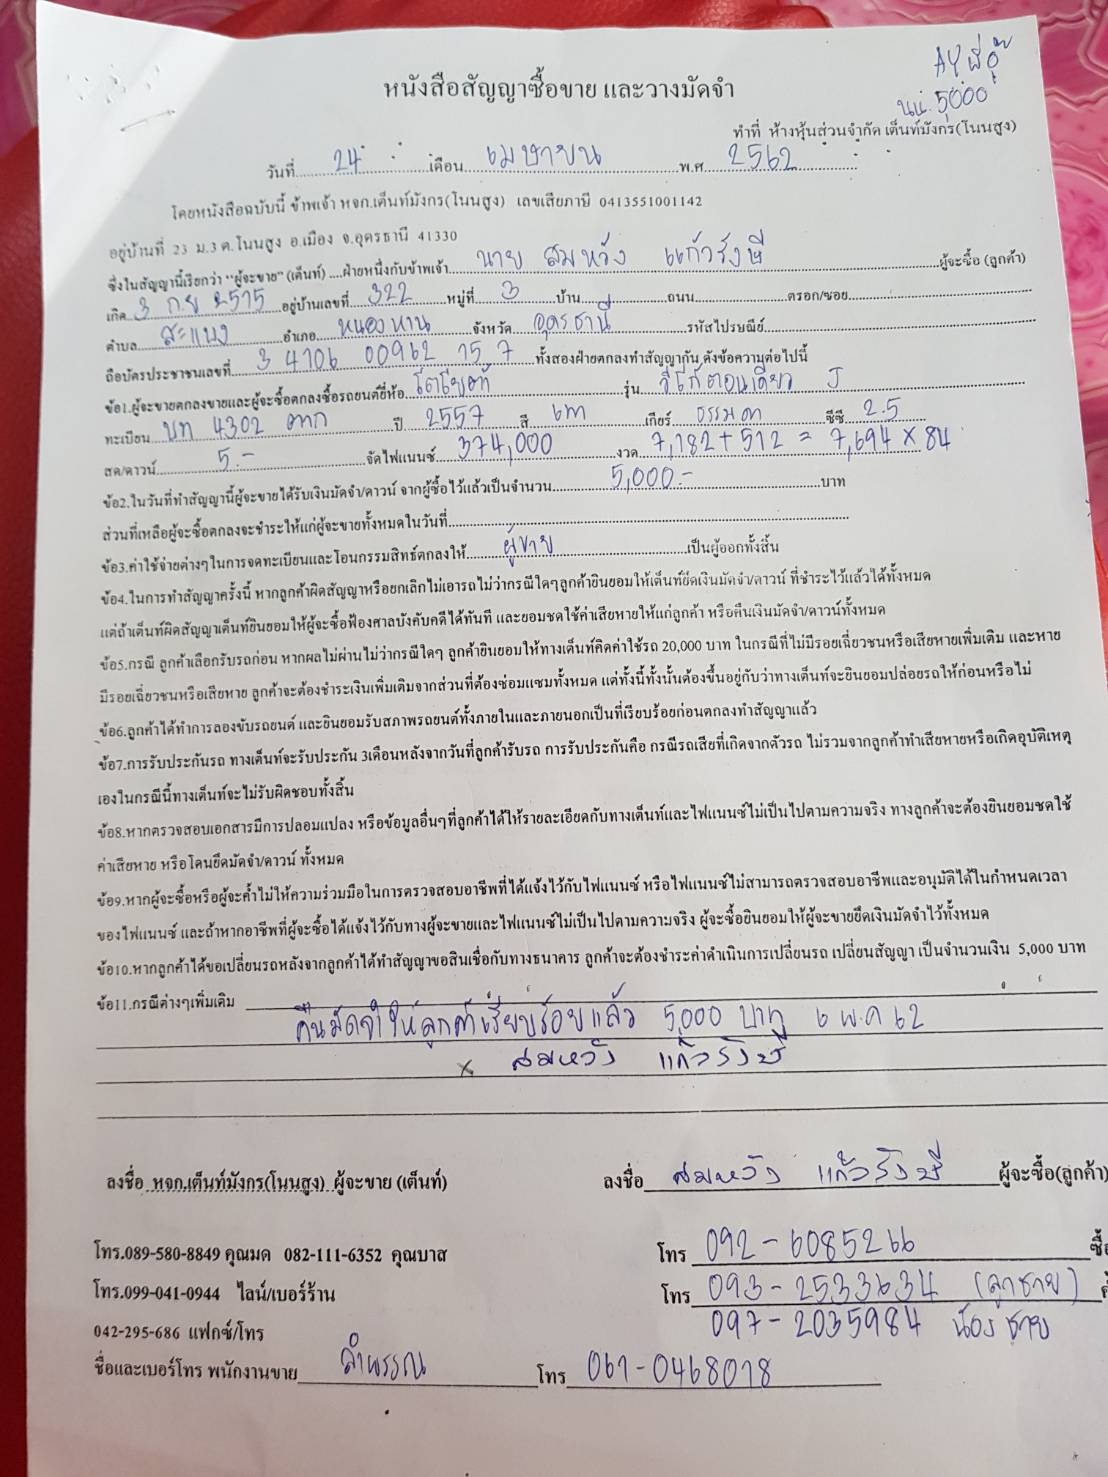 AY พี่อู๊
นน. 5000
หนังสือสัญญาซื้อขาย และวางมัดจำ
ทำที่ ห้างหุ้นส่วนจำกัด เต็นท์มังกร(โนนสูง)
วันที่ 24 เดือน เมษายน พ.ศ. 2562
โดยหนังสือฉบับนี้ ข้าพเจ้า หจก.เต็นท์มังกร(โนนสูง) เลขเสียภาษี 0413551001142
อยู่บ้านที่ 23 ม.3 ต.โนนสูง อ.เมือง จ.อุดรธานี 41330
ซึ่งในสัญญานี้เรียกว่า "ผู้จะขาย" (เต็นท์) ....ฝ่ายหนึ่งกับข้าพเจ้า นาย สมหวัง แก้วรังษี ผู้จะซื้อ (ลูกค้า)
เกิด 3 ก.ย 2515 อยู่บ้านเลขที่ 322 หมู่ที่ 3 บ้าน ถนน ตรอก/ซอย
ตำบล สะแบง อำเภอ หนองหาน จังหวัด อุดรธานี รหัสไปรษณีย์
ถือบัตรประชาชนเลขที่ 3 4106 00962 15 7 ทั้งสองฝ่ายตกลงทำสัญญากัน ดังข้อความต่อไปนี้
ข้อ1.ผู้จะขายตกลงขายและผู้จะซื้อตกลงซื้อรถยนต์ยี่ห้อ โตโยต้า รุ่น วีโก้ตอนเดียว J
ทะเบียน บท 4302 ตาก ปี 2557 สี เทา เกียร์ ธรรมดา ซีซี 2.5
สด/ดาวน์ 5.- จัดไฟแนนซ์ 374,000 งวด 7,182 + 512 = 7,694 × 84
ข้อ2.ในวันที่ทำสัญญานี้ผู้จะขายได้รับเงินมัดจำ/ดาวน์ จากผู้ซื้อไว้แล้วเป็นจำนวน 5,000.- บาท
ส่วนที่เหลือผู้จะซื้อตกลงจะชำระให้แก่ผู้จะขายทั้งหมดในวันที่
ข้อ3.ค่าใช้จ่ายต่างๆในการจดทะเบียนและโอนกรรมสิทธ์ตกลงให้ ผู้ขาย เป็นผู้ออกทั้งสิ้น
ข้อ4.ในการทำสัญญาครั้งนี้ หากลูกค้าผิดสัญญาหรือยกเลิกไม่เอารถไม่ว่ากรณีใดๆลูกค้ายินยอมให้เต็นท์ยึดเงินมัดจำ/ดาวน์ ที่ชำระไว้แล้วได้ทั้งหมด
แต่ถ้าเต็นท์ผิดสัญญาเต็นท์ยินยอมให้ผู้จะซื้อฟ้องศาลบังคับคดีได้ทันที และยอมชดใช้ค่าเสียหายให้แก่ลูกค้า หรือคืนเงินมัดจำ/ดาวน์ทั้งหมด
ข้อ5.กรณี ลูกค้าเลือกรับรถก่อน หากผลไม่ผ่านไม่ว่ากรณีใดๆ ลูกค้ายินยอมให้ทางเต็นท์คิดค่าใช้รถ 20,000 บาท ในกรณีที่ไม่มีรอยเฉี่ยวชนหรือเสียหายเพิ่มเติม และหาย
มีรอยเฉี่ยวชนหรือเสียหาย ลูกค้าจะต้องชำระเงินเพิ่มเติมจากส่วนที่ต้องซ่อมแซมทั้งหมด แต่ทั้งนี้ทั้งนั้นต้องขึ้นอยู่กับว่าทางเต็นท์จะยินยอมปล่อยรถให้ก่อนหรือไม่
ข้อ6.ลูกค้าได้ทำการลองขับรถยนต์ และยินยอมรับสภาพรถยนต์ทั้งภายในและภายนอกเป็นที่เรียบร้อยก่อนตกลงทำสัญญาแล้ว
ข้อ7.การรับประกันรถ ทางเต็นท์จะรับประกัน 3เดือนหลังจากวันที่ลูกค้ารับรถ การรับประกันคือ กรณีรถเสียที่เกิดจากตัวรถ ไม่รวมจากลูกค้าทำเสียหายหรือเกิดอุบัติเหตุ
เองในกรณีนี้ทางเต็นท์จะไม่รับผิดชอบทั้งสิ้น
ข้อ8.หากตรวจสอบเอกสารมีการปลอมแปลง หรือข้อมูลอื่นๆที่ลูกค้าได้ให้รายละเอียดกับทางเต็นท์และไฟแนนซ์ไม่เป็นไปตามความจริง ทางลูกค้าจะต้องยินยอมชดใช้
ค่าเสียหาย หรือโดนยึดมัดจำ/ดาวน์ ทั้งหมด
ข้อ9.หากผู้จะซื้อหรือผู้จะค้ำไม่ให้ความร่วมมือในการตรวจสอบอาชีพที่ได้แจ้งไว้กับไฟแนนซ์ หรือไฟแนนซ์ไม่สามารถตรวจสอบอาชีพและอนุมัติได้ในกำหนดเวลา
ของไฟแนนซ์ และถ้าหากอาชีพที่ผู้จะซื้อได้แจ้งไว้กับทางผู้จะขายและไฟแนนซ์ไม่เป็นไปตามความจริง ผู้จะซื้อยินยอมให้ผู้จะขายยึดเงินมัดจำไว้ทั้งหมด
ข้อ10.หากลูกค้าได้ขอเปลี่ยนรถหลังจากลูกค้าได้ทำสัญญาขอสินเชื่อกับทางธนาคาร ลูกค้าจะต้องชำระค่าดำเนินการเปลี่ยนรถ เปลี่ยนสัญญา เป็นจำนวนเงิน 5,000 บาท
ข้อ11.กรณีต่างๆเพิ่มเติม
คืนมัดจำให้ลูกค้าเรียบร้อยแล้ว 5,000 บาท 6 พ.ค 62
x สมหวัง แก้วรังษี
ลงชื่อ หจก.เต็นท์มังกร(โนนสูง) ผู้จะขาย (เต็นท์) ลงชื่อ สมหวัง แก้วรังษี ผู้จะซื้อ(ลูกค้า)
โทร.089-580-8849 คุณมด 082-111-6352 คุณบาส โทร 092-6085266
โทร.099-041-0944 ไลน์/เบอร์ร้าน โทร 093-2533634 (ลูกชาย)
097-2035984 น้องชาย
042-295-686 แฟกซ์/โทร
ชื่อและเบอร์โทร พนักงานขาย ลำพรรณ โทร 061-0468018